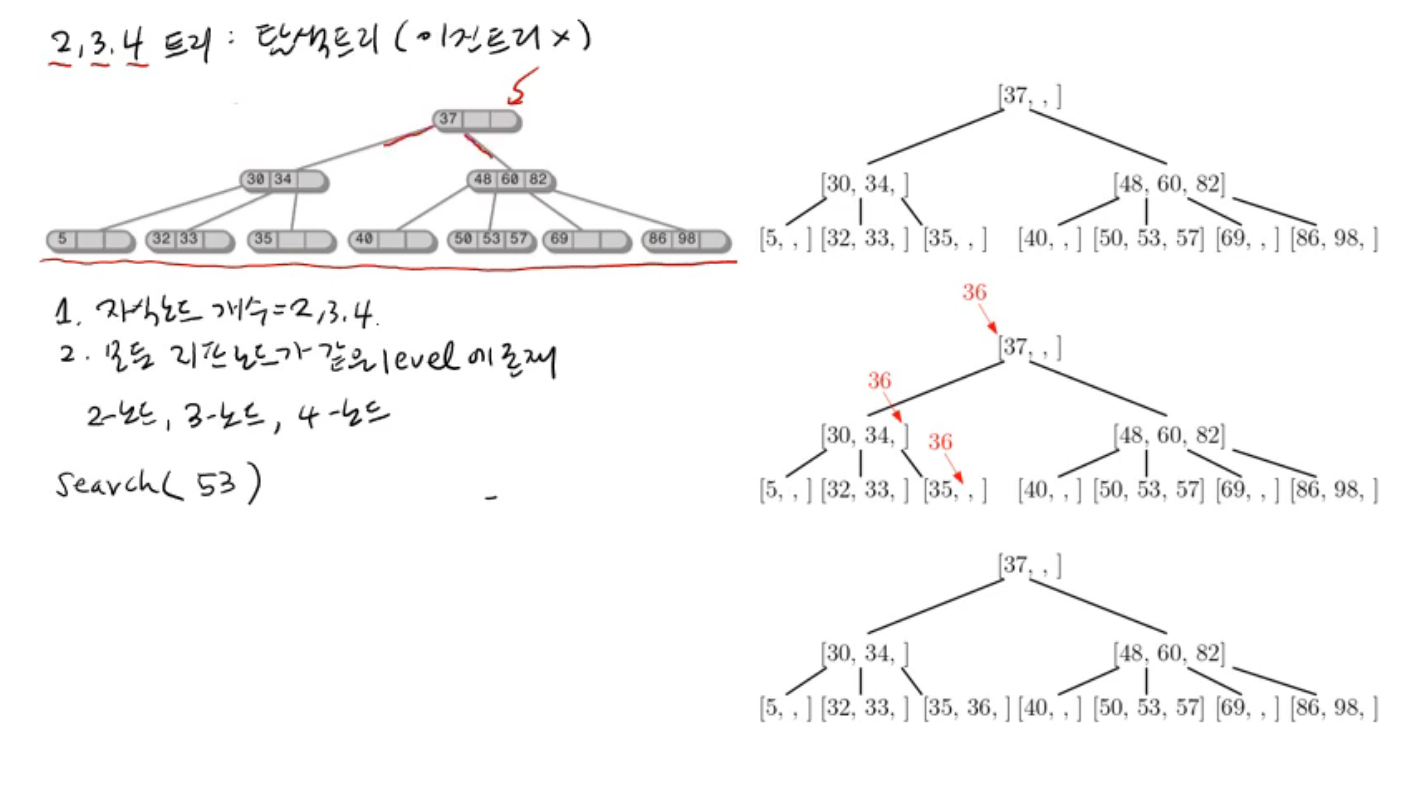 2,3.4 트리 : 탐색트리 (이진트리 x)
37
30 34
48 60 82
5
32 33
35
40
50 53 57
69
86 98
1. 자식노드 개수=2,3.4.
2. 모든 리프노드가 같은 level에 존재
2-노드, 3-노드, 4-노드
search( 53 )
[37, , ]
[30, 34, ] [48, 60, 82]
[5, , ] [32, 33, ] [35, , ] [40, , ] [50, 53, 57] [69, , ] [86, 98, ]
36
[37, , ]
36
[30, 34, ] 36 [48, 60, 82]
[5, , ] [32, 33, ] [35, , ] [40, , ] [50, 53, 57] [69, , ] [86, 98, ]
[37, , ]
[30, 34, ] [48, 60, 82]
[5, , ] [32, 33, ] [35, 36, ] [40, , ] [50, 53, 57] [69, , ] [86, 98, ]